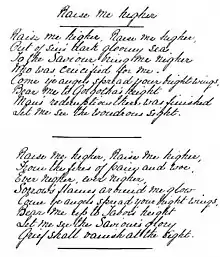 Raise me higher
Raise me higher, Raise me higher,
Out of sin's dark gloomy sea
To the Saviour bring me nigher
Who was crucified for me.
Come ye angels spread your bright wings,
Bear me to Golgotha's height
Mans redemption there was finished
Let me see the wondrous sight.
Raise me higher, Raise me higher,
From the fires of pain and woe.
Ever higher, ever higher,
Sorrow's flames around me glow
Come ye angels spread your bright wings,
Bear me up to Tabor's height
Let me see the Saviour's glory
Grief shall vanish at the sight.